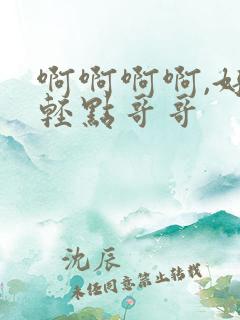 啊啊啊啊,好
轻點哥哥
沈辰
未经同意禁止转载